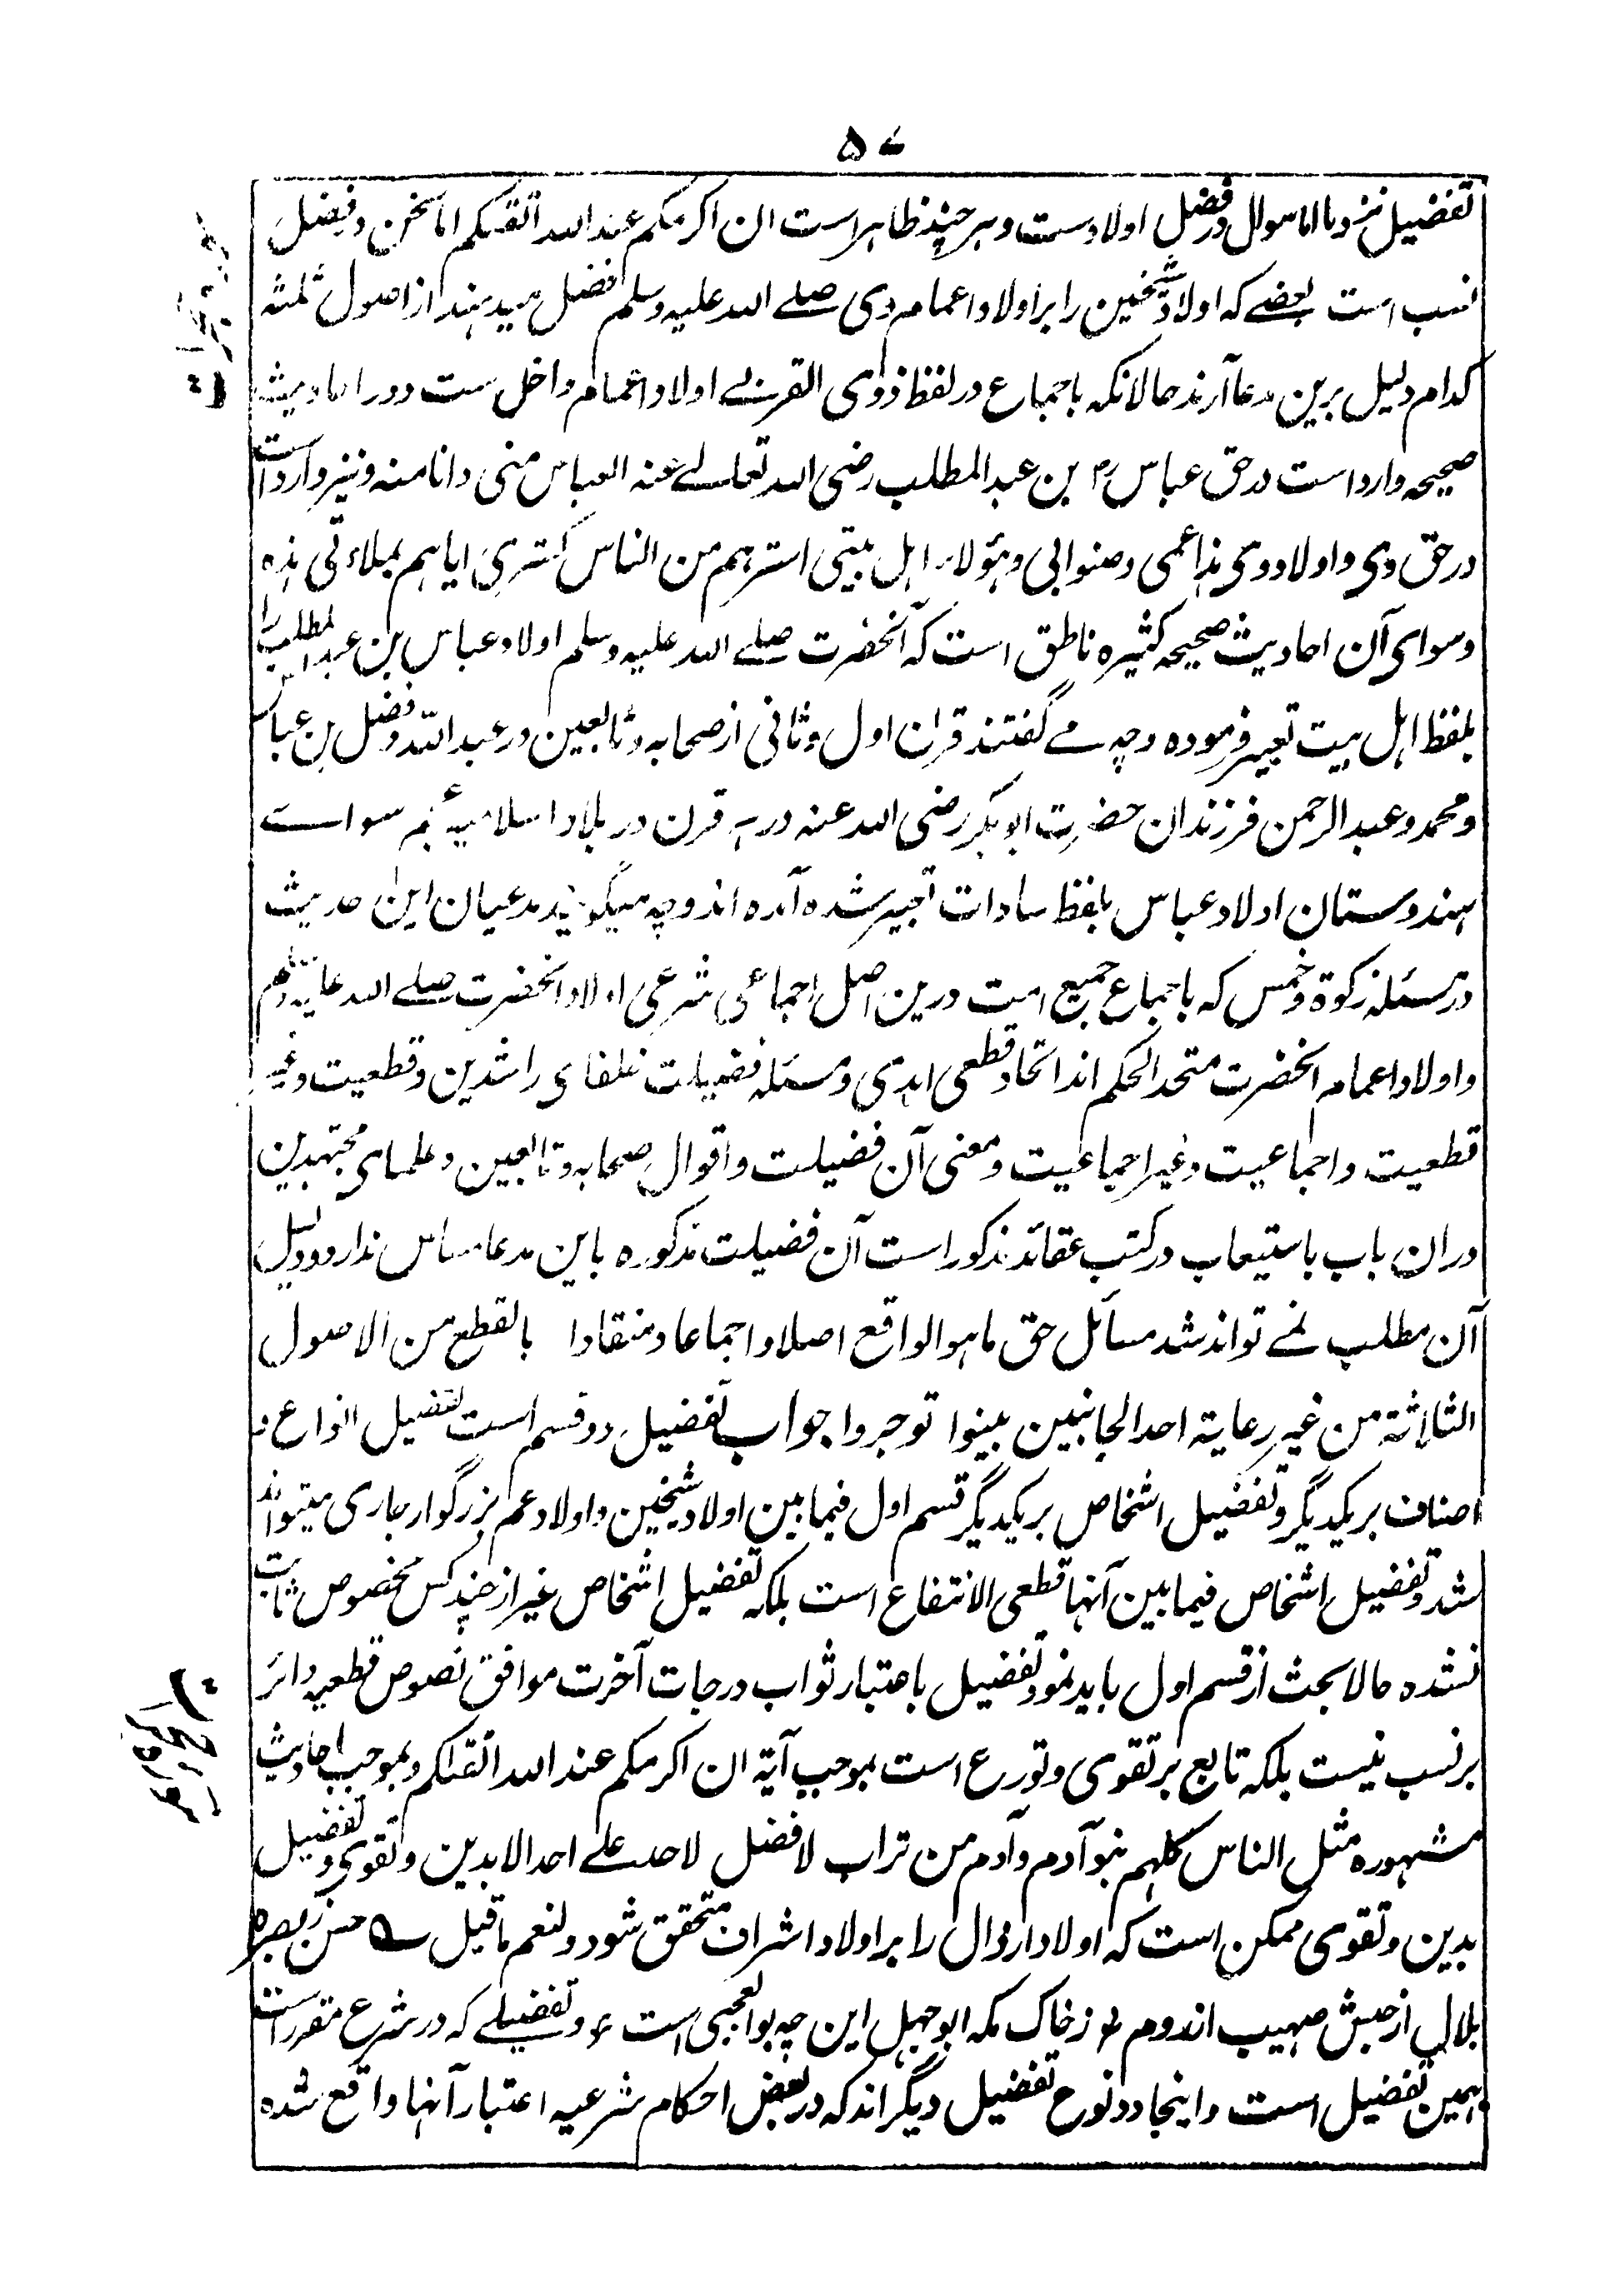 ۵۷
تفضیل نزد ما اما سوال در فضل اولادست و هر چند ظاهر است ان اکرمکم عند الله اتقکم اما سخن در فضل
نسب است بعضے که اولاد شیخین را بر اولاد اعمام وی صلے الله علیه وسلم فضل میدهند از اصول ثلثه
کدام دلیل برین مدعا آرند حالانکه باجماع در لفظ ذوی القربے اولاد اعمام داخل ست و در احادیث
صحیحه وارد است در حق عباس رض بن عبد المطلب رضی الله تعالے عنه العباس منی و انا منه و نیز وارد است
در حق وی و اولاد وی هذا عمی و صنو ابی و هؤلاء اهل بیتی استرهم من الناس کستری ایاهم بملاءتی هذه
و سوای آن احادیث صحیحه کثیره ناطق است که آنحضرت صلے الله علیه وسلم اولاد عباس بن عبد المطلب را
بلفظ اهل بیت تعبیر فرموده و چه مے گفتند قرن اول و ثانی از صحابه و تابعین در عبد الله و فضل بن عباس
و محمد و عبد الرحمن فرزندان حضرت ابوبکر رضی الله عنه در هر قرن در بلاد اسلامیه سوائے
هندوستان اولاد عباس بلفظ سادات تعبیر شده آمده اند و چه میگویند مدعیان این حدیث
در مسئله زکوة و خمس که باجماع جمیع امت درین اصل اجماعی شرعی اولاد آنحضرت صلے الله علیه وسلم
و اولاد اعمام آنحضرت متحد الحکم اند اتحاد قطعی ابدی و مسئله فضیلت خلفای راشدین و قطعیت و غیر
قطعیت و اجماعیت و غیر اجماعیت و معنی آن فضیلت و اقوال صحابه و تابعین و علمای مجتهدین
دران باب باستیعاب در کتب عقائد مذکور است آن فضیلت مذکوره باین مدعا مساس ندارد و دلیل
آن مطلب نمے تواند شد مسائل حق ما هو الواقع اصلا و اجماعا و منقادا بالقطع من الاصول
الثلاثة من غیر رعایة احد الجانبین بینوا توجروا جواب تفضیل دو قسم است تفضیل انواع و
اصناف بر یکدیگر و تفضیل اشخاص بر یکدیگر قسم اول فیما بین اولاد شیخین و اولاد عم بزرگوار جاری میتواند
شد و تفضیل اشخاص فیما بین آنها قطعی الانتفاع است بلکه تفضیل اشخاص غیر از چند کس مخصوص ثابت
نشده حالا بحث از قسم اول باید نمود تفضیل باعتبار ثواب درجات آخرت موافق نصوص قطعیه دائر
بر نسب نیست بلکه تابع بر تقوی و تورع است بموجب آیة ان اکرمکم عند الله اتقکم و بموجب احادیث
مشهوره مثل الناس کلهم بنو آدم و آدم من تراب لا فضل لاحد علے احد الا بدین و تقوی و تفضیل
بدین و تقوی ممکن است که اولاد ارذال را بر اولاد اشراف متحقق شود و لنعم ما قیل ے حسن ز بصره
بلال از حبش صهیب از روم ٭ ز خاک مکه ابوجهل این چه بوالعجبی است ؏ و تفضیلے که در شرع مقرر است
همین تفضیل است و اینجا دو نوع تفضیل دیگر اند که در بعض احکام شرعیه اعتبار آنها واقع شده